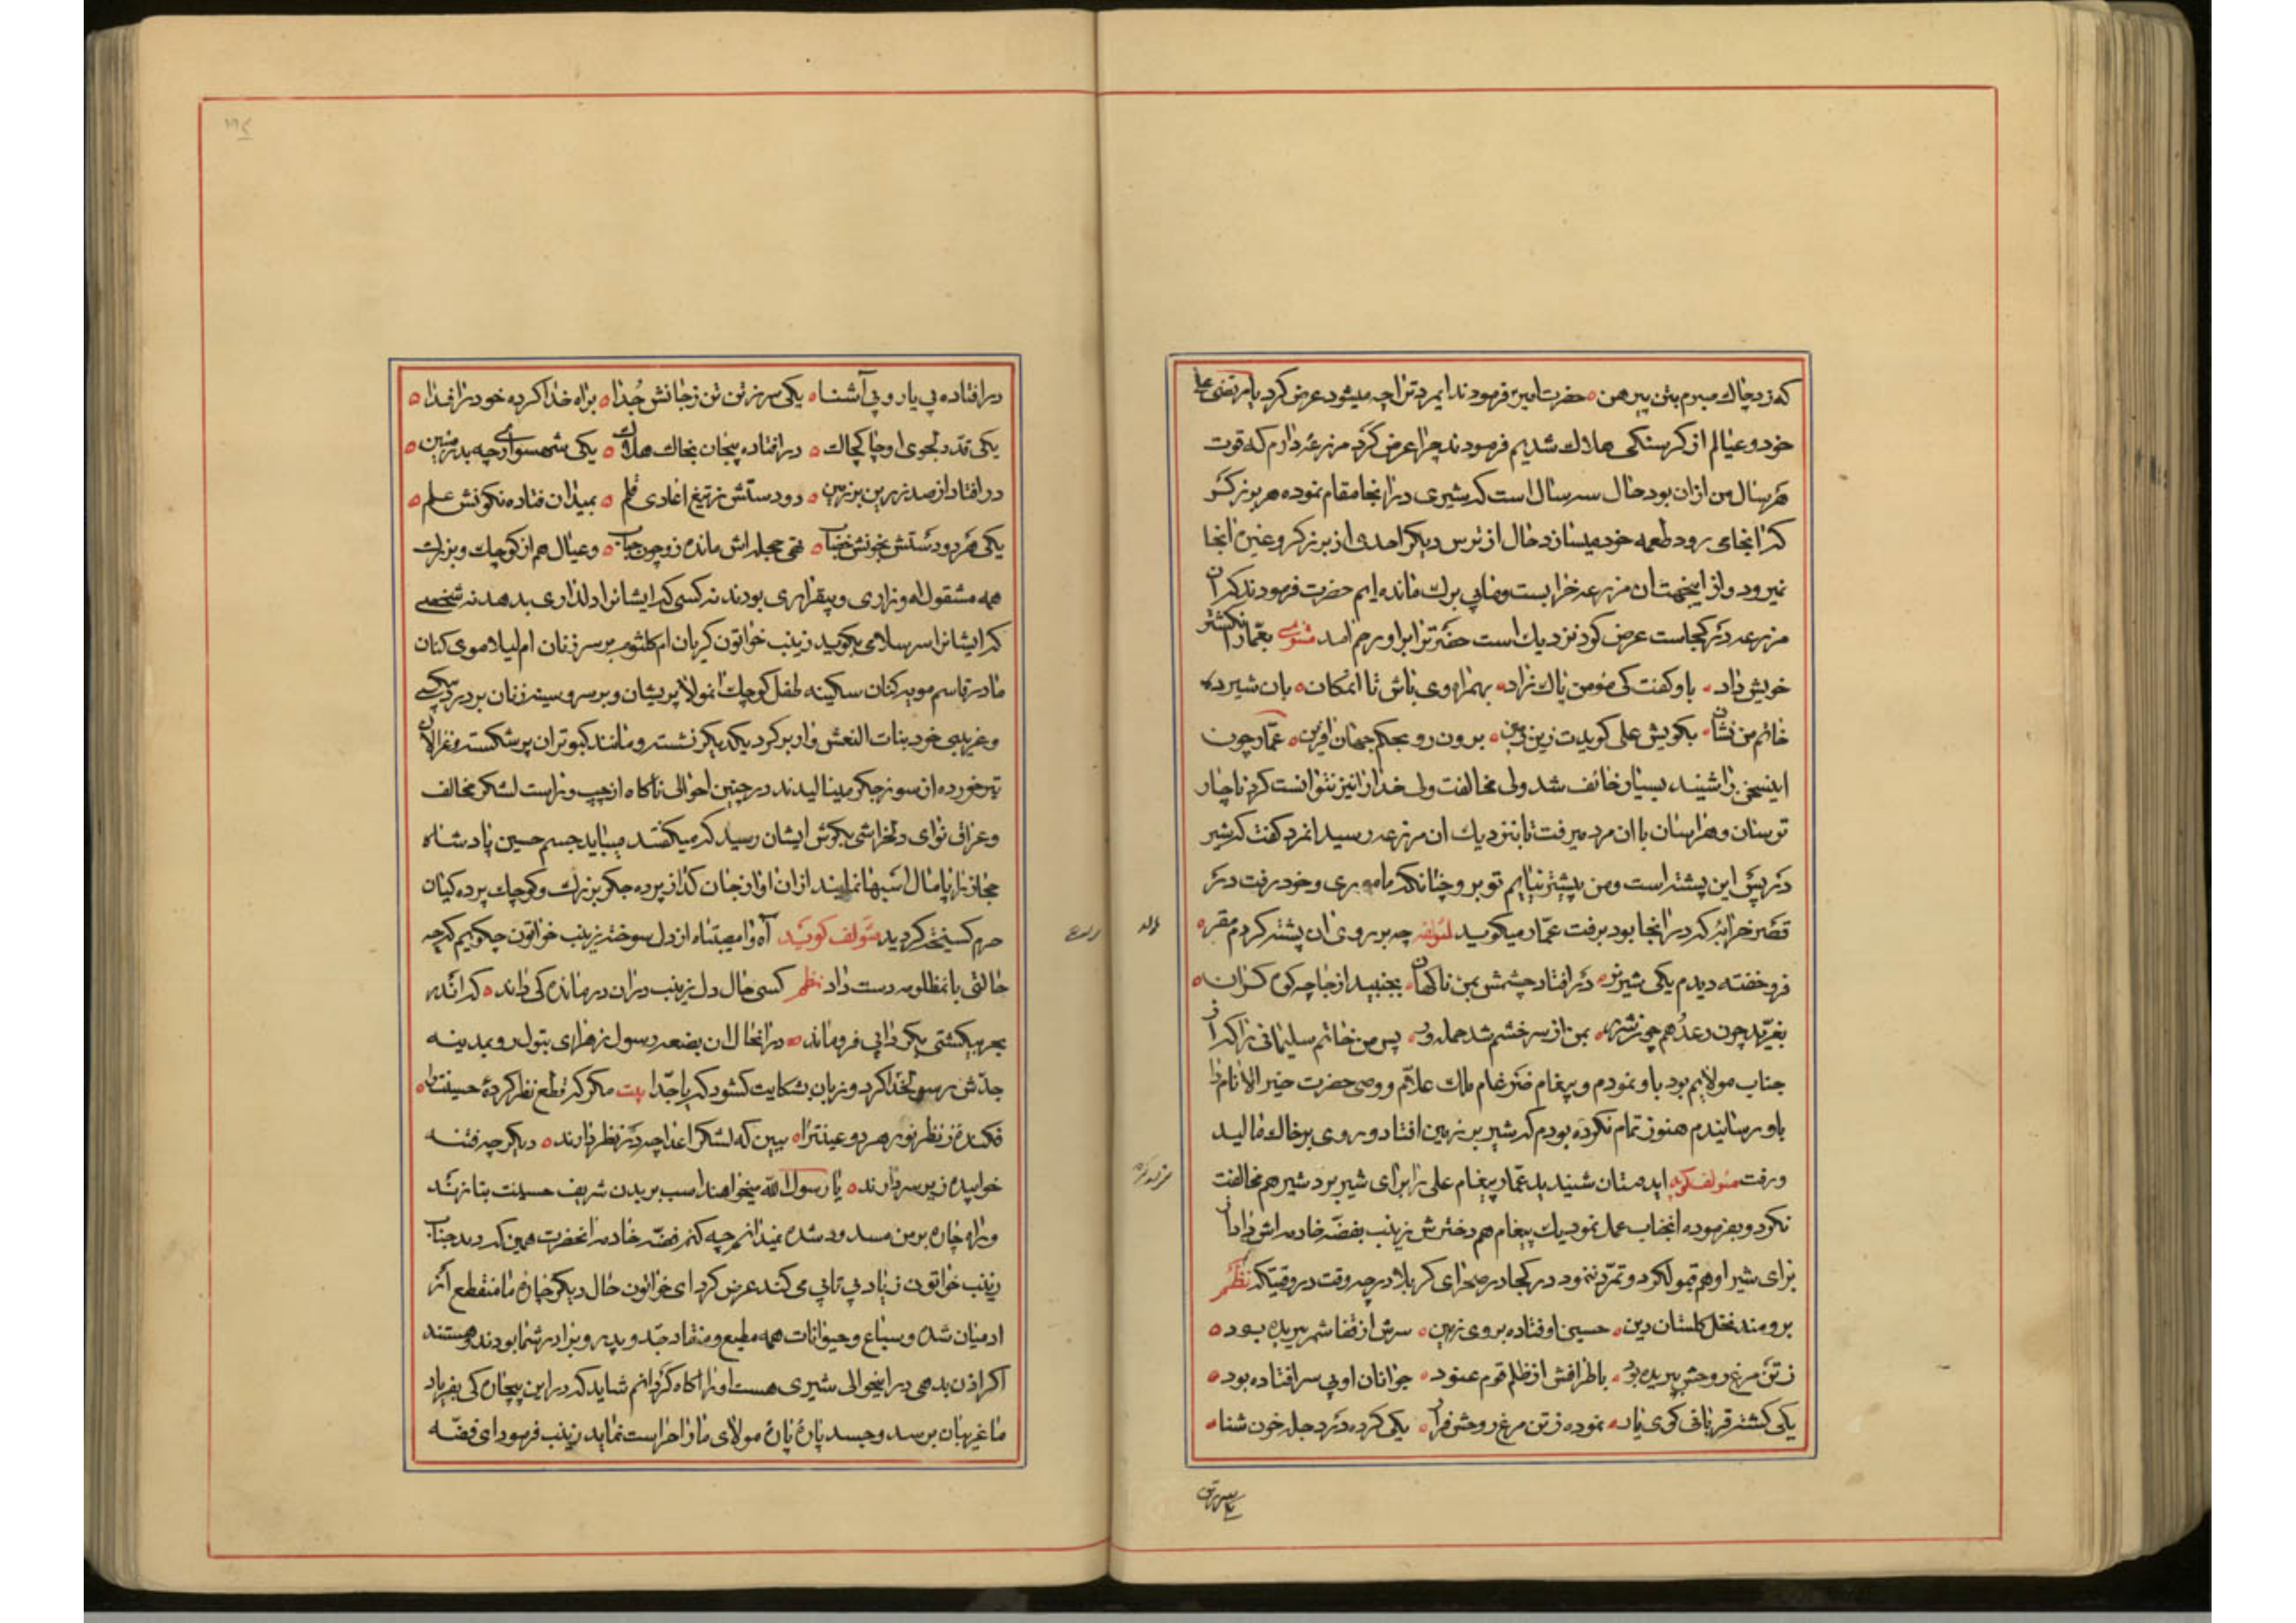 که زد چاك مبرم بتن پیرهن ه حضرت امیر فرمودند ایمرد ترا چه میشود عرض کرد یا مرتضی علی
خود و عیالم از کرسنکی هلاك شدیم فرمودند چرا عرض کرد مزرعهٔ دارم که قوت
هر سال من از ان بود حال سه سال است که شیری در انجا مقام نموده هر برزکر
که انجا می رود طعمه خود میسازد حال از ترس دیکر احدی از برزکر و غیره انجا
نمیرود و از اینجهت ان مزرعه خرابست و ما بی برك مانده ایم حضرت فرمودند که ان
مزرعه در کجاست عرض کرد نزدیك است حضرترا برا و رحم امد مثنوی بعمار انکشتر
خویش داد ه باو کفت کی مومن پاك زاد ه بهمراه وی باش تا انمکان ه بان شیر ده
خاتم من نشان ه بکویش علی کویدت زین زمین ه برون رو بحکم جهان افرین ه عمار چون
اینسخن را شنید بسیار خائف شد ولی مخالفت ولی خدا را نیز نتوانست کرد ناچار
ترسان و هراسان با ان مرد میرفت تا بنزدیك ان مزرعه رسید انمرد کفت که شیر
در پس این پشته است و من پیشتر نیایم تو برو چنانکه ماموری و خود رفت در
قصر خرابهٔ که در انجا بود برفت عمار میکوید لمؤلفه چه بر روی ان پشته کردم مقر ه
فرو خفته دیدم یکی شیر نر ه در افتاد چشمش بمن ناکهان ه بجنبید از جا چه کوه کران ه
بغرید چون رعد هم چو شرر ه بمن از سر خشم شد حمله ور ه پس من خاتم سلیمانی را که از
جناب مولایم بود باو نمودم و پیغام ضرغام ملك علام و وصی حضرت خیر الانام را
باو رسانیدم هنوز تمام نکرده بودم که شیر بر زمین افتاد و روی بر خاك مالید
و رفت مؤلف کوید ایدوستان شنیدید عمار پیغام علی را برای شیر برد شیر هم مخالفت
نکرد و بفرموده انجناب عمل نمود یك پیغام هم دخترش زینب بفضه خادمه اش داد ان
برای شیر او هم قبول کرد و تمرد ننمود در کجا در صحرای کربلا در چه وقت در وقتیکه نظم
برومند نخل کلستان دین ه حسین اوفتاده بروی زمین ه سرش از قفا شمر ببریده بود ه
ز تن مرغ روحش پریده بود ه باطرافش از ظلم قوم عنود ه جوانان او بی سر افتاده بود ه
یکی کشته قربانی کوی یار ه نموده ز تن مرغ روحش فرار ه یکی کرده در دجله خون شنا ه
یکی سر ز تن
در افتاده بی یار و بی آشنا ه یکی سر ز تن تن ز جانش جدا ه براه خدا کرده خود را فدا ه
یکی قد دلجوی او چاك چاك ه در افتاده بیجان بخاك هلاك ه یکی شهسواری چه بدر منیر ه
در افتاد از صدر زین بر زمین ه دو دستش ز تیغ اعادی قلم ه بمیدان فتاده نکونش علم ه
یکی هر دو دستش بخونش خضاب ه تهی حجله اش مانده ز و چون حباب ه و عیال هم از کوچك و بزرك
همه مشغول اه و زاری و بیقراری بودند نه کسی که ایشانرا دلداری بدهد نه شخصی
که ایشانرا سر سلامی بکوید زینب خواتون کریان ام کلثوم بر سر زنان ام لیلا موی کنان
مادر قاسم مویه کنان سکینه طفل کوچك انمولا پریشان و بر سر و سینه زنان بر درد بیکسی
و غریبی خود بنات النعش وار بر کرد یکدیکر نشسته و مانند کبوتران پر شکسته و غزالان
تیر خورده از سوز جکر مینالیدند در چنین احوالی ناکاه از چپ و راست لشکر مخالف
و عراق نوای دلخراشی بکوش ایشان رسید که میکفتند میباید جسم حسین پادشاه
حجاز را پامال اسبها نمایند از ان اواز جان کداز پرده جکر بزرك و کوچك پرده کیان
حرم کسیخته کردید مؤلف کوید آه وامصیبتاه از دل سوخته زینب خواتون چکویم که چه
حالتی بانمظلومه دست داد نظم کسی حال دل زینب در ان درمانده کی داند ه که اندر
بحر بیکشتی بکردابی فرو ماند ه در انحال ان بضعه رسول زهرای بتول رو بمدینه
جدش رسولخدا کرد و زبان بشکایت کشود که یا جدا بیت مکر که قطع نظر کردهٔ حسینت را ه
فکندهٔ ز نظر نور هر دو عینت را ه ببین که لشکر اعدا چه در نظر دارند ه دیکر چه فتنه
خوابیده زیر سر دارند ه یا رسول الله میخواهند اسب بر بدن شریف حسینت بتازند
و راه چاره بر من مسدود شده نمیدانم چه کنم فضه خادمه انحضرت همین که دید جناب
زینب خواتون زیاد بی تابی می کند عرض کرد ای خواتون حال دیکر چارهٔ ما منقطع از
ادمیان شده و سباع و حیوانات همه مطیع و منقاد جد و پدر و برادر شما بودند و هستند
اکر اذن بدهی در اینحوالی شیری هست او را اکاه کردانم شاید که در این بیچاره کی بفریاد
ما غریبان برسد و جسد پارهٔ پارهٔ مولای ما را حراست نماید زینب فرمود ای فضه